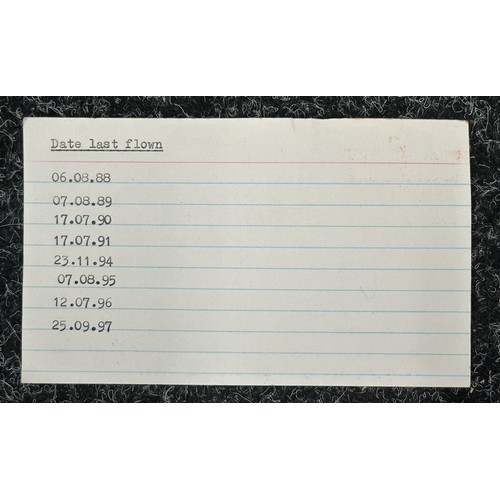 Date last flown
06.08.88
07.08.89
17.07.90
17.07.91
23.11.94
07.08.95
12.07.96
25.09.97